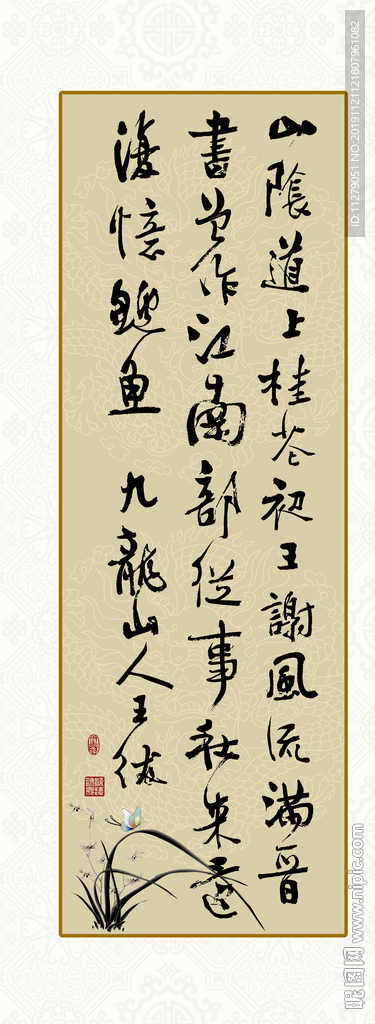 山陰道上桂花初王謝風流滿晉
書曾作江南部從事秋來還
復憶鱸魚 九龍山人王紱
ID:11279051 NO:20191121121807961082
昵图网 www.nipic.com